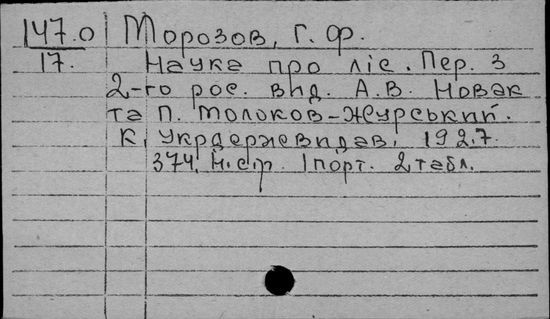 147.0 Морозов, Г. Ф.
17. Наука про ліс. Пер. з
2-го рос. вид. А. В. Новак
та П. Молоков-Журський.
К, Укрдержвидав, 1927.
374, н.с.ф. 1 порт. 2 табл.